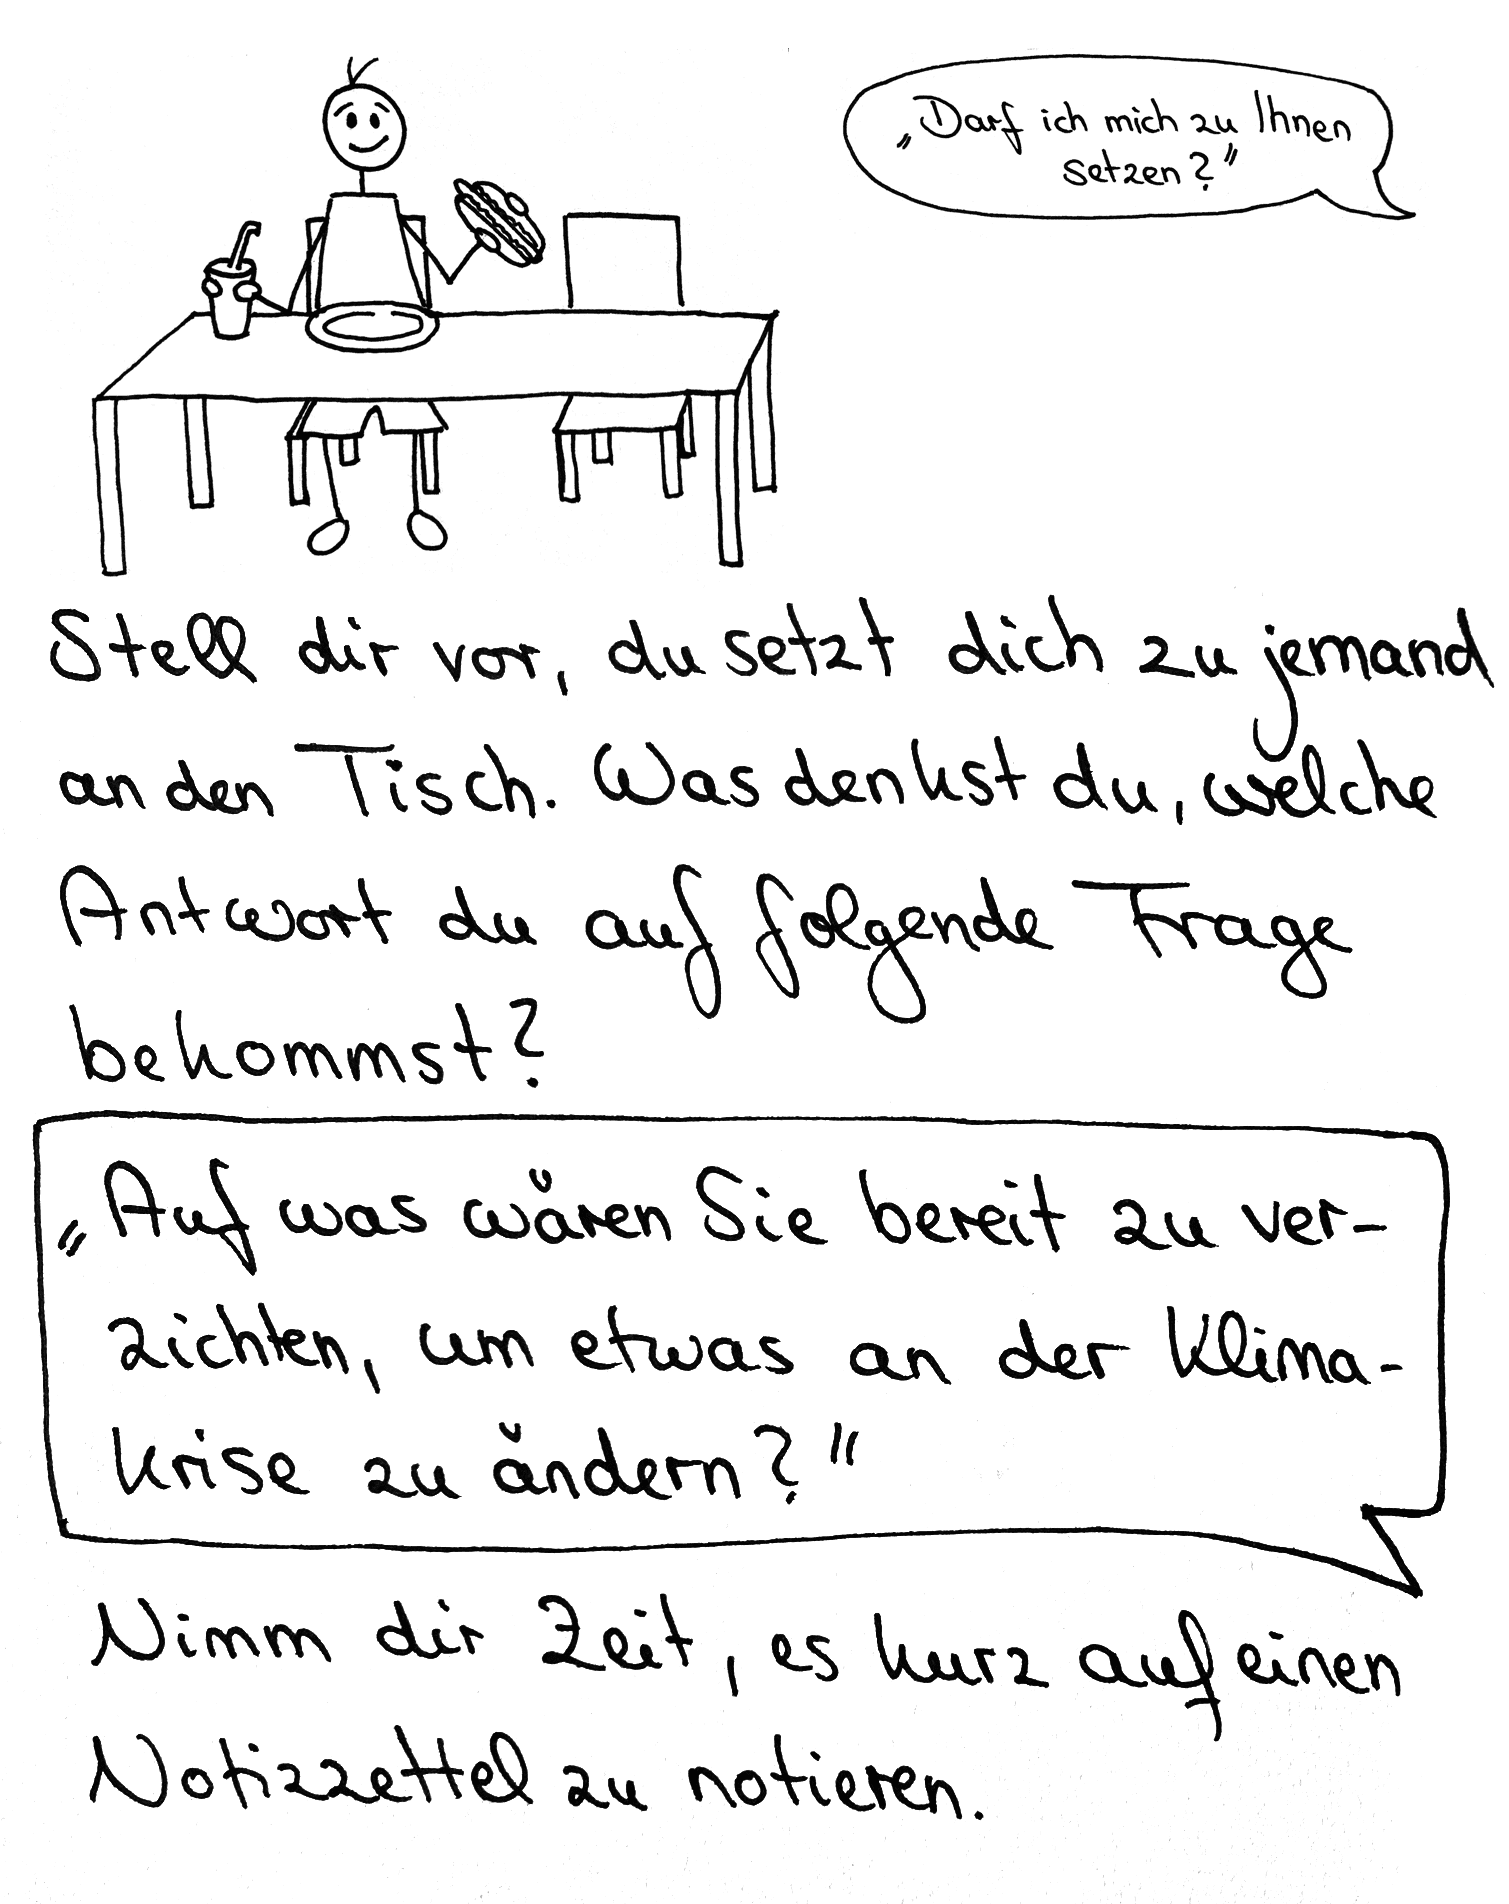 „Darf ich mich zu Ihnen
setzen?"
Stell dir vor, du setzt dich zu jemand
an den Tisch. Was denkst du, welche
Antwort du auf folgende Frage
bekommst?
„Auf was wären Sie bereit zu ver-
zichten, um etwas an der Klima-
krise zu ändern?"
Nimm dir Zeit, es kurz auf einen
Notizzettel zu notieren.